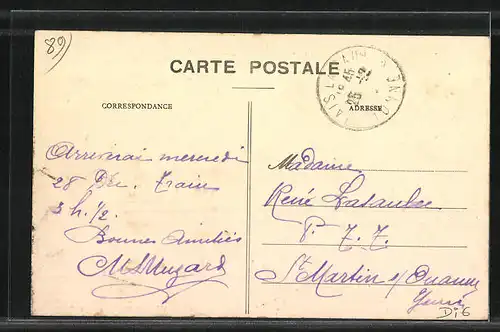 89
CARTE POSTALE
CORRESPONDANCE
ADRESSE
Arriverai mercredi
28 Déc. Train
3 h. 1/2
Bonnes Amitiés
Madame
René
P. T. T.
St Martin s/ Ouanne
Yonne
D16